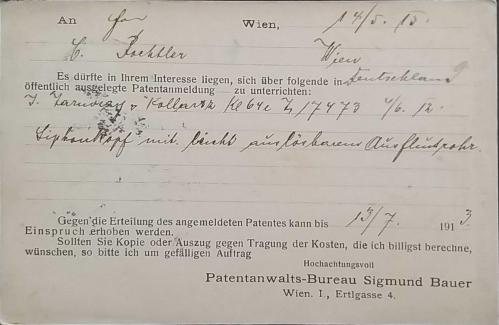 An
Wien, 14/5. 13.
Wien
Es dürfte in Ihrem Interesse liegen, sich über folgende in Deutschland
öffentlich ausgelegte Patentanmeldung — zu unterrichten:
Kl 64c Z 17473 4/6. 12.
Siphonkopf mit leicht auslösbarem Ausflußrohr.
Gegen die Erteilung des angemeldeten Patentes kann bis 13/7. 1913.
Einspruch erhoben werden.
Sollten Sie Kopie oder Auszug gegen Tragung der Kosten, die ich billigst berechne,
wünschen, so bitte ich um gefälligen Auftrag
Hochachtungsvoll
Patentanwalts-Bureau Sigmund Bauer
Wien. I., Ertlgasse 4.